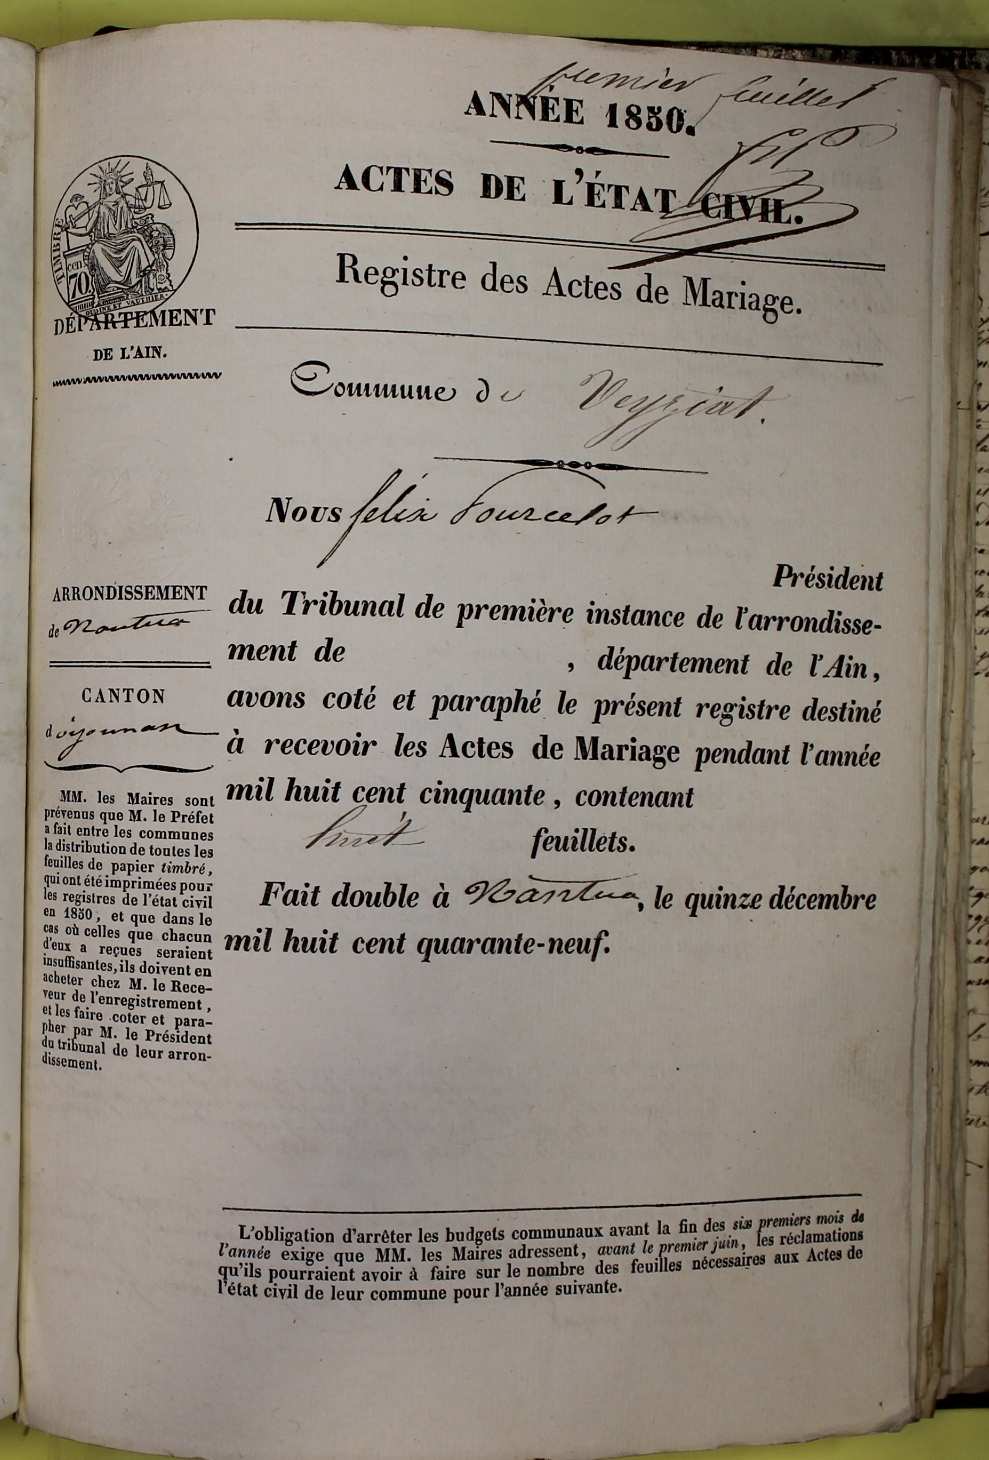 premier feuillet
ANNÉE 1850.
ACTES DE L'ÉTAT CIVIL.
Registre des Actes de Mariage.
TIMBRE
cen
70
DÉPARTEMENT
DE L'AIN.
Commune de Veyziat.
Nous félix Fourcelot
Président
du Tribunal de première instance de l'arrondisse-
ment de , département de l'Ain,
avons coté et paraphé le présent registre destiné
à recevoir les Actes de Mariage pendant l'année
mil huit cent cinquante, contenant
huit feuillets.
Fait double à Nantua, le quinze décembre
mil huit cent quarante-neuf.
ARRONDISSEMENT
de Nantua
CANTON
d'oyonnax
MM. les Maires sont
prévenus que M. le Préfet
a fait entre les communes
la distribution de toutes les
feuilles de papier timbré,
qui ont été imprimées pour
les registres de l'état civil
en 1850, et que dans le
cas où celles que chacun
d'eux a reçues seraient
insuffisantes, ils doivent en
acheter chez M. le Rece-
veur de l'enregistrement,
et les faire coter et para-
pher par M. le Président
du tribunal de leur arron-
dissement.
L'obligation d'arrêter les budgets communaux avant la fin des six premiers mois de
l'année exige que MM. les Maires adressent, avant le premier juin, les réclamations
qu'ils pourraient avoir à faire sur le nombre des feuilles nécessaires aux Actes de
l'état civil de leur commune pour l'année suivante.